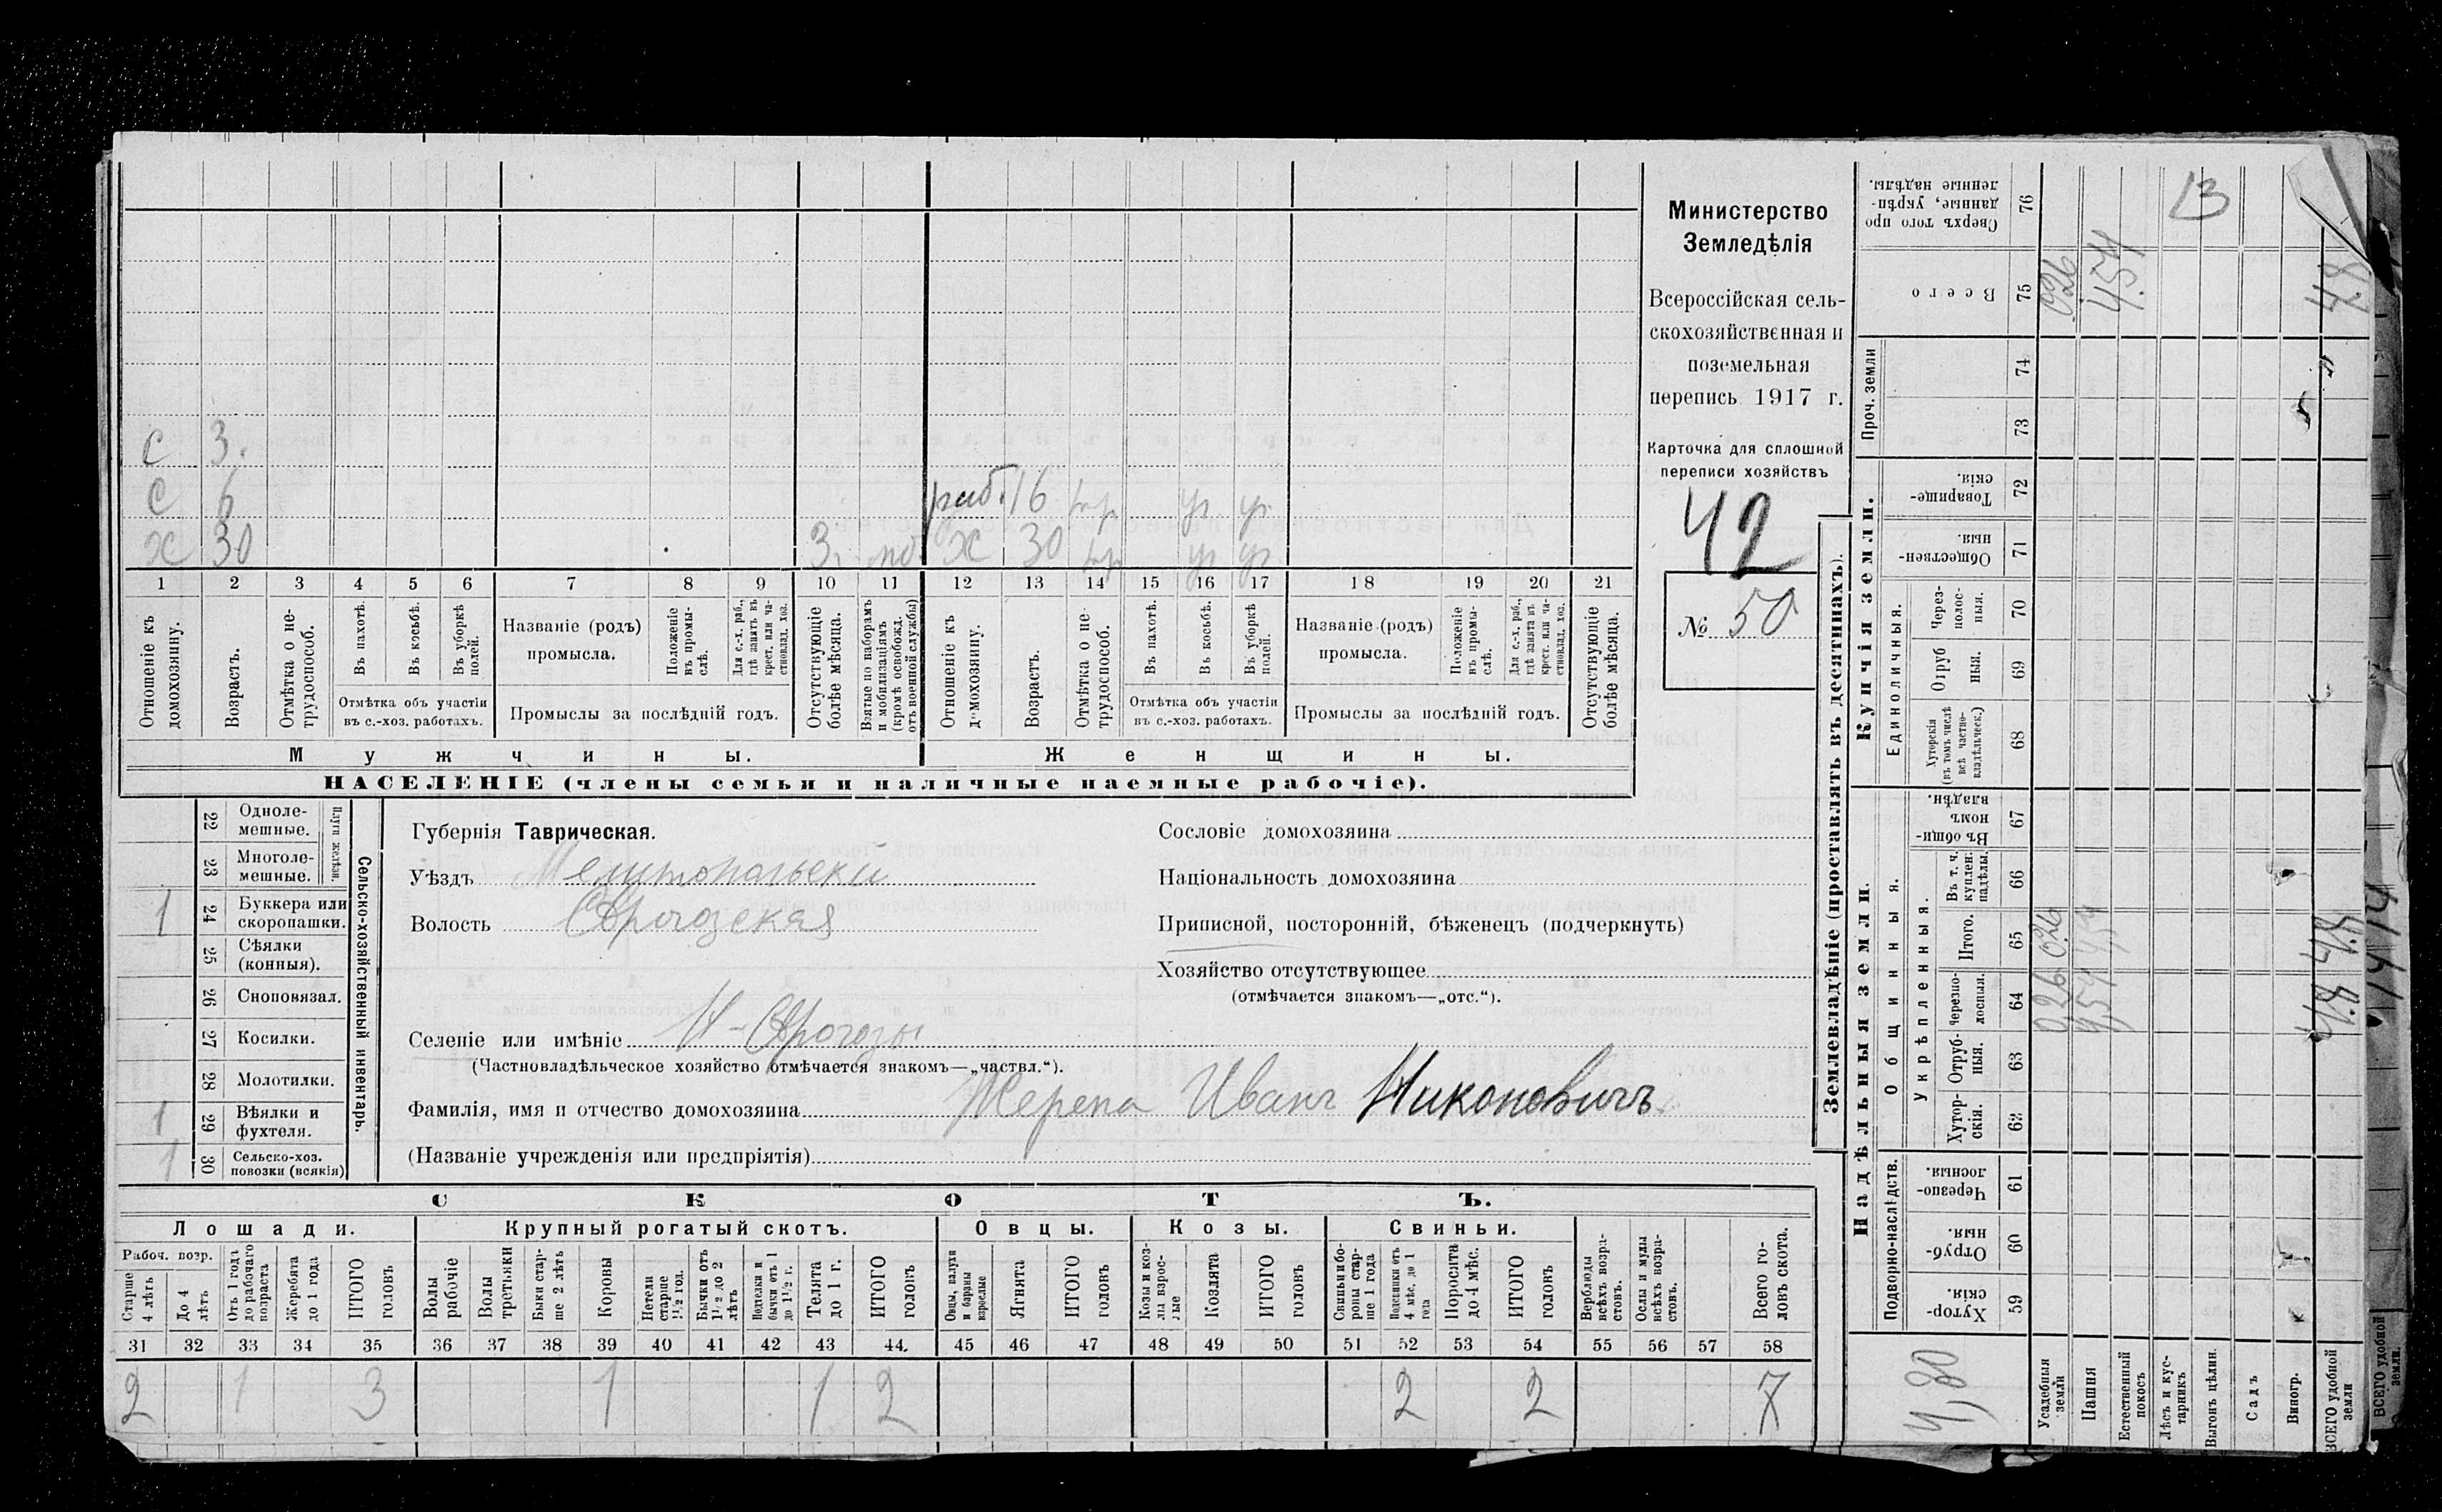 с 3.
с 6 раб. 16 ур ур
х 30 3. моб. Ж 30 ур ур
1 2 3 4 5 6 7 8 9 10 11 12 13 14 15 16 17 18 19 20 21
Отношеніе къ домохозяину.
Возрастъ.
Отмѣтка о не-
трудоспособ.
Въ пахотѣ.
Въ косьбѣ.
Въ уборкѣ полей.
Отмѣтка объ участіи
въ с.-хоз. работахъ.
Названіе (родъ)
промысла.
Положеніе въ промы-
слѣ.
Для с.-х. раб., гдѣ занятъ въ крест. или ча-
стновлад. хоз.
Промыслы за послѣдній годъ.
Отсутствующіе
болѣе мѣсяца.
Взятые по наборамъ
и мобилизаціямъ
(кромѣ освобожд.
отъ военной службы)
Отношеніе къ
домохозяину.
Возрастъ.
Отмѣтка о не-
трудоспособ.
Въ пахотѣ.
Въ косьбѣ.
Въ уборкѣ полей.
Отмѣтка объ участіи
въ с.-хоз. работахъ.
Названіе (родъ)
промысла.
Положеніе въ промы-
слѣ.
Для с.-х. раб., гдѣ занята въ крест. или ча-
стновлад. хоз.
Промыслы за послѣдній годъ.
Отсутствующіе
болѣе мѣсяца.
Мужчины.
Женщины.
НАСЕЛЕНІЕ (члены семьи и наличные наемные рабочіе).
Министерство
Земледѣлія
Всероссійская сель-
скохозяйственная и
поземельная
перепись 1917 г.
Карточка для сплошной
переписи хозяйствъ
42
№ 50
Сельско-хозяйственный инвентарь.
Плуги желѣзн.
22 Одноле-
мешные.
23 Многоле-
мешные.
1 24 Буккера или
скоропашки.
25 Сѣялки
(конныя).
26 Сноповязал.
27 Косилки.
28 Молотилки.
1 29 Вѣялки и
фухтеля.
1 30 Сельско-хоз.
повозки (всякія)
Губернія Таврическая.
Уѣздъ Мелитопольскій
Волость
Селеніе или имѣніе
(Частновладѣльческое хозяйство отмѣчается знакомъ—„частвл.“).
Фамилія, имя и отчество домохозяина Жерепа Иванъ Никоновичъ
(Названіе учрежденія или предпріятія)
Сословіе домохозяина
Національность домохозяина
Приписной, посторонній, бѣженецъ (подчеркнуть)
Хозяйство отсутствующее
(отмѣчается знакомъ—„отс.“).
СКОТЪ.
Лошади.
Крупный рогатый скотъ.
Овцы.
Козы.
Свиньи.
Рабоч. возр.
Старше
4 лѣтъ
До 4
лѣтъ
Отъ 1 года
до рабочаго
возраста
Жеребята
до 1 года
ИТОГО
головъ
Волы
рабочіе
Волы
третьяки
Быки стар-
ше 2 лѣтъ
Коровы
Нетели
старше
1½ год.
Бычки отъ
1½ до 2
лѣтъ
Подтелки и
бычки отъ 1
до 1½ г.
Телята
до 1 г.
ИТОГО
головъ
Овцы, валухи
и бараны
взрослые
Ягнята
ИТОГО
головъ
Козы и коз-
лы взрос-
лые
Козлята
ИТОГО
головъ
Свиньи и бо-
ровы стар-
ше 1 года
Подсвинки отъ
4 мѣс. до 1
года
Поросята
до 4 мѣс.
ИТОГО
головъ
Верблюды
всѣхъ возра-
стовъ.
Ослы и мулы
всѣхъ возра-
стовъ.
Всего го-
ловъ скота.
31 32 33 34 35 36 37 38 39 40 41 42 43 44 45 46 47 48 49 50 51 52 53 54 55 56 57 58
2 1 3 1 1 2 2 2 7
Землевладѣніе (проставлять въ десятинахъ).
Надѣльныя земли.
Купчія земли.
Проч. земли
Подворно-наслѣдств.
Общинныя.
Укрѣпленныя.
Единоличныя.
Сверхъ того про
данные, укрѣп-
ленные надѣлы. 76
Всего 75
74
73
Товарище-
скія. 72
Обществен-
ныя. 71
Через-
полос-
ныя. 70
Отруб
ныя. 69
Хуторскія
(въ томъ числѣ
всѣ частно-
владѣльческ.) 68
Въ общи-
номъ
владѣн. 67
Въ т. ч.
куплен.
надѣлы. 66
Итого. 65
Черезпо-
лосныя. 64
Отруб-
ныя. 63
Хутор-
скія. 62
Черезпо-
лосныя. 61
Отруб-
ныя. 60
Хутор-
скія. 59
Усадебныя
земли 0,26 0,26 0,26
Пашня 4,54 4,54 4.54
Естественный
покосъ
Лѣсъ и кус-
тарникъ
Выгонъ цѣлин.
Садъ
Виногр.
ВСЕГО удобной
земли 4.8 4.8 4.8
4,80
13
ВСЕГО удобной
земли.